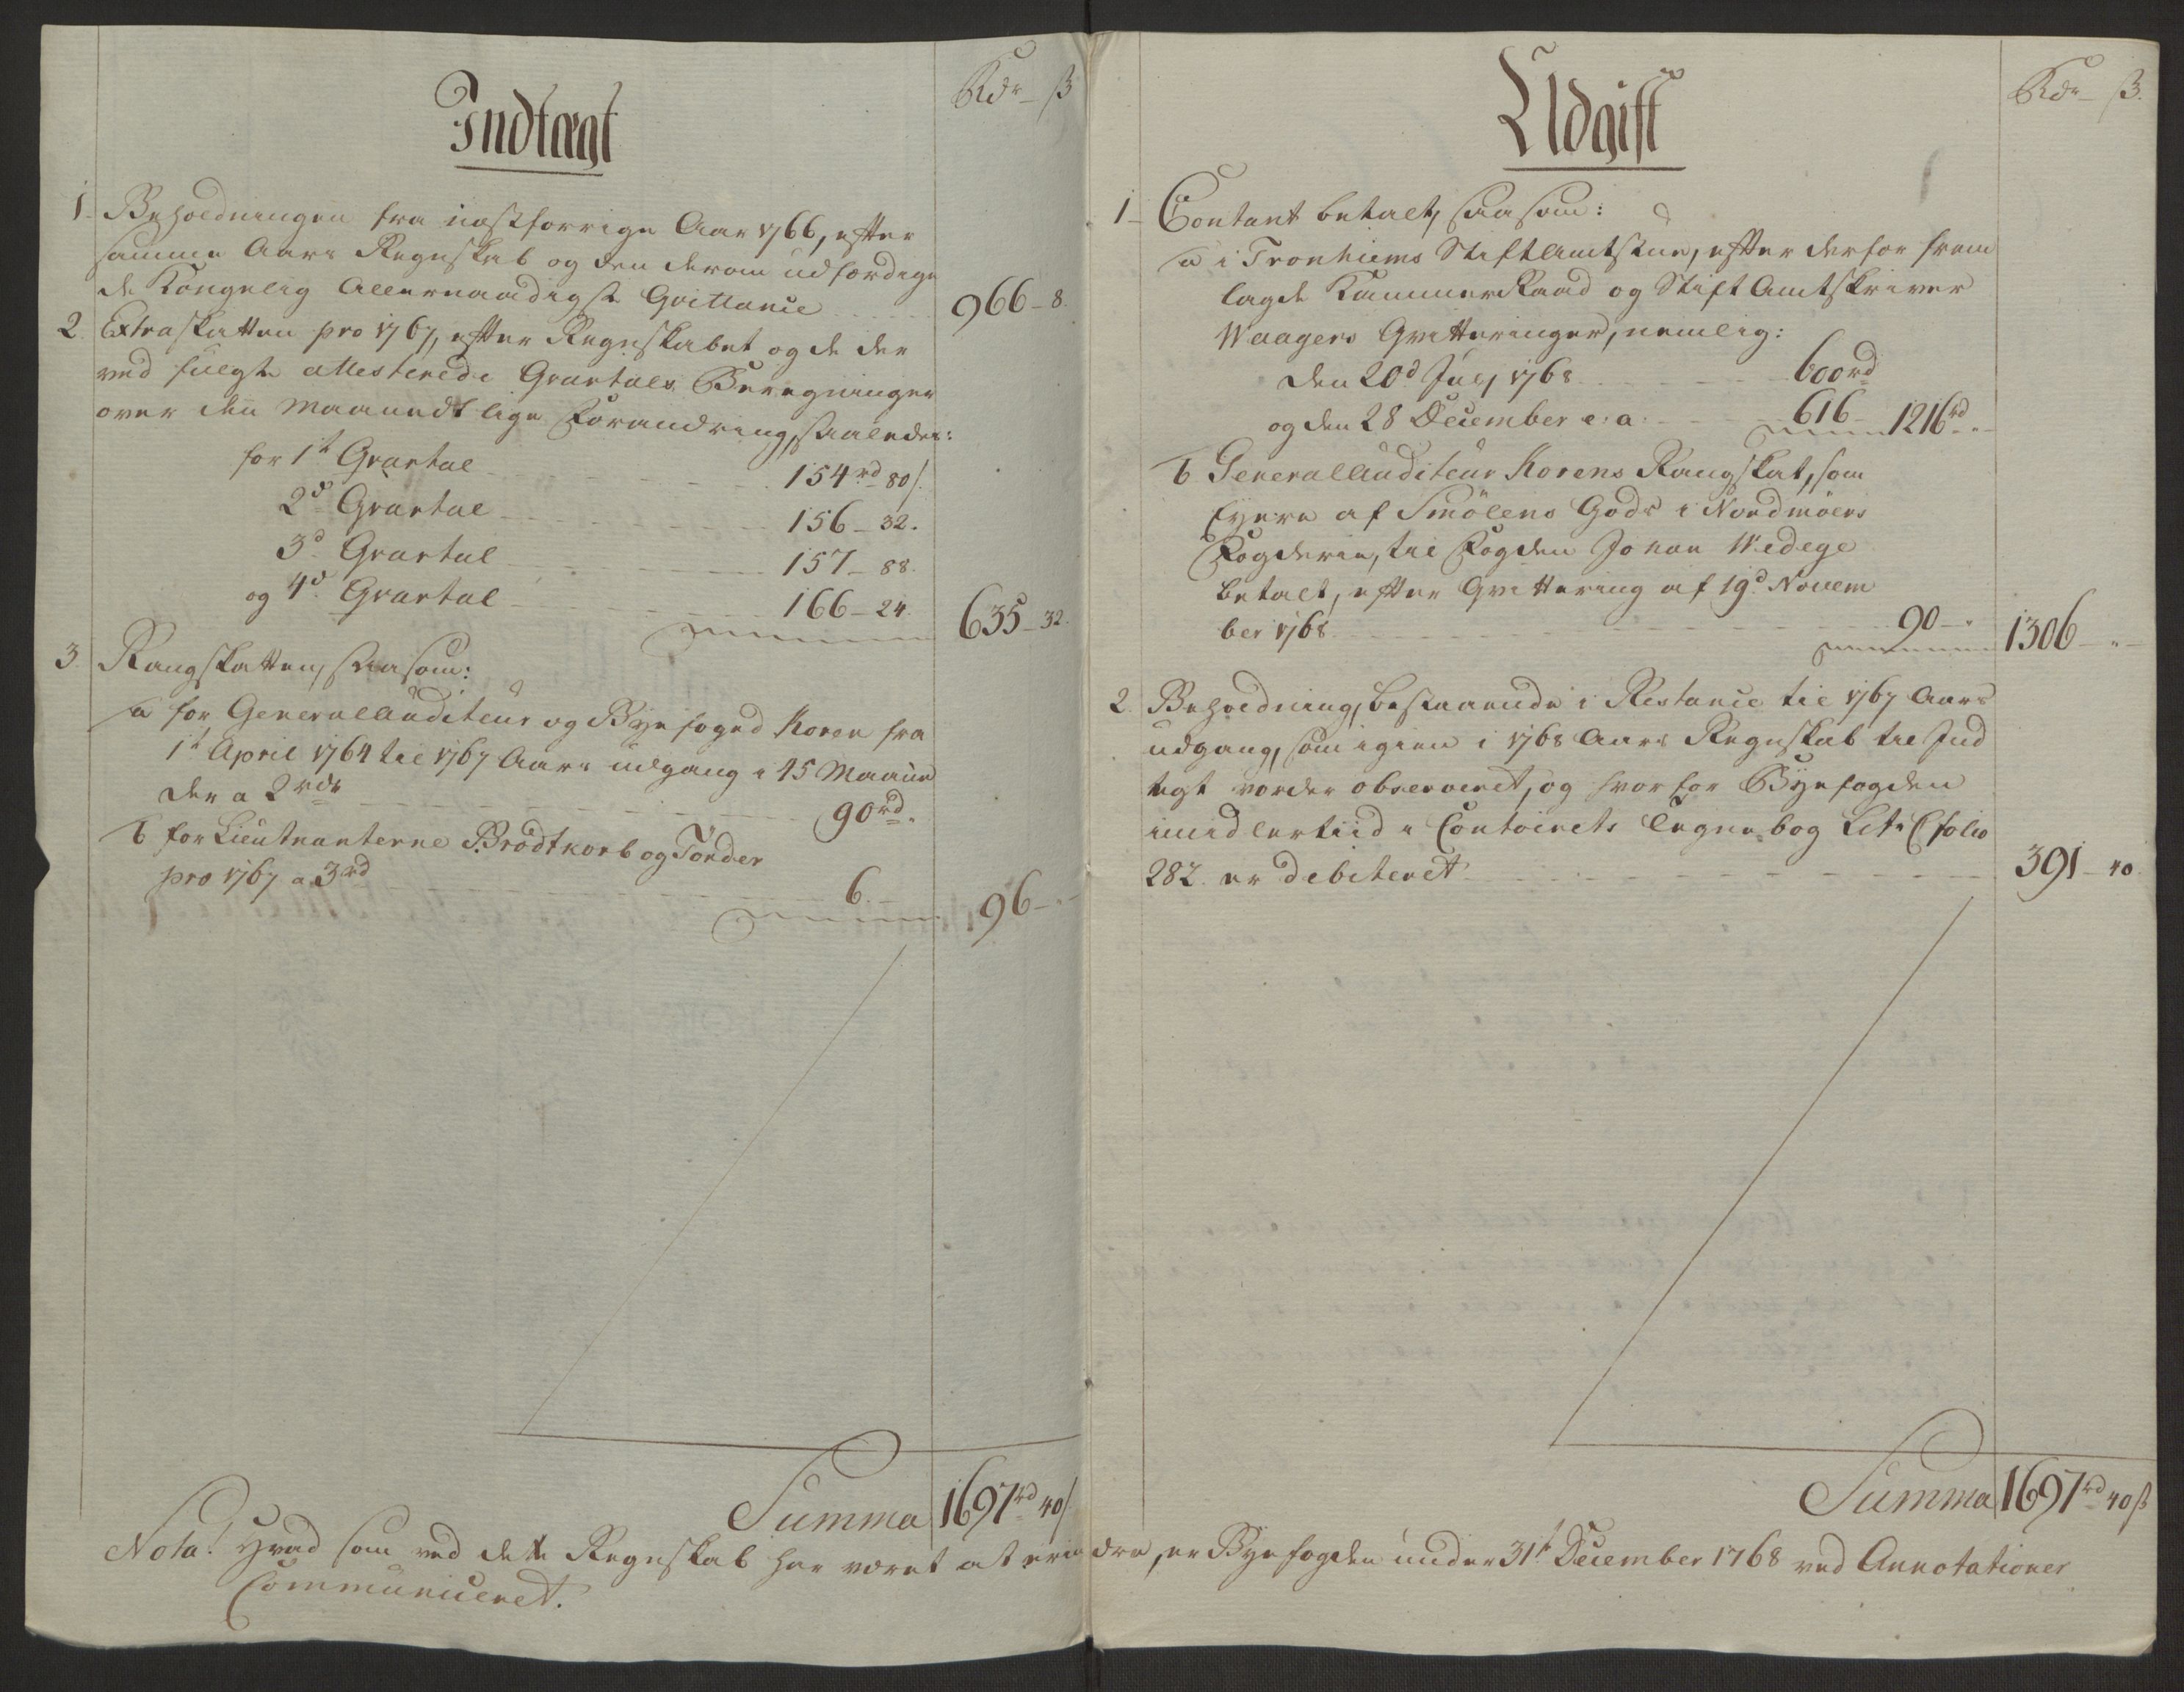 Indtægt
Rdr ß
1. Beholdningen fra næstforrige Aar 1766, efter
samme Aars Regnskab og den derom udfærdige
de Kongelig Allernaadigste Qvittance 966 - 8.
2. Extraskatten pro 1767, efter Regnskabet og de der
ved fulgte attesterede Qvartals Beregninger
over den Maanedtlige Forandring, saaledes:
for 1t Qvartal 154rd 80ß.
2d Qvartal 156 - 32.
3d Qvartal 157 - 88.
og 4d Qvartal 166 - 24. 635 - 32.
3. Rangskatten, saasom:
a for Generalauditeur og Byefoged Koren fra
1t April 1764 til 1767 Aars udgang i 45 Maane
der a 2rdr 90rd.
b for Lieutnanterne P. Brodtkorb og Tonder
pro 1767 a 3rd 6. - 96 - . -
Summa 1697rd 40ß
Udgift
Rdr ß.
1 - Contant betalt, saasom:
a i Tronhiems Stiftamtstue, efter derfor frem
lagde KammerRaad og Stift Amtskriver
Waagers Qvitteringer, nemlig:
den 20d July 1768 600rd
og den 28 December e. a. 616 - 1216rd . -
b Generalauditeur Korens Rangskat, som
Eyere af Smölens Gods i Nordmöers
Fogderie, til Fogden Johan Wedege
betalt, efter Qvittering af 19d Novem
ber 1768 90 - . 1306 - . -
2. Beholdning, bestaaende i Restance til 1767 Aars
udgang, som igien i 1768 Aars Regnskab til Ind
tegt vorder observeret, og hvorfor Byefogden
imidlertiid i Contoirets Tegnebog Lit. C folio
282. er debiteret 391 - 40.
Summa 1697rd 40ß
Nota! Hvad som ved dette Regnskab har været at erindre, er Byefogden under 31t December 1768 ved Annotationer
Communiceret.